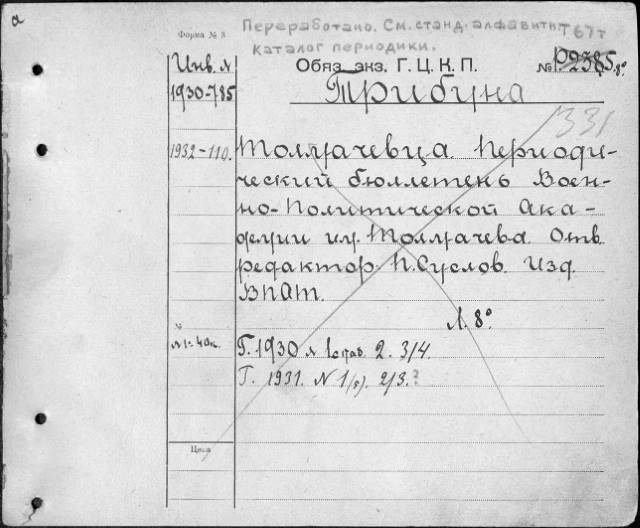 а
Форма № 3
Переработано. См. станд. алфавитн.
Т 67т
каталог периодики.
Инв. №
Обяз. экз. Г. Ц. К. П.
№ Р2385. 8°
1930-785
Трибуна
331
1932-110.
Толмачевца. Периоди-
ческий бюллетень Воен-
но-Политической Ака-
демии им. Толмачева. Отв.
редактор П. Суслов. Изд.
ВПАТ.
Л. 8°
№
№ 1- 40к.
Г. 1930 № 1 2. 3/4.
Г. 1931. № 1/5). 2/3. ?
Цена